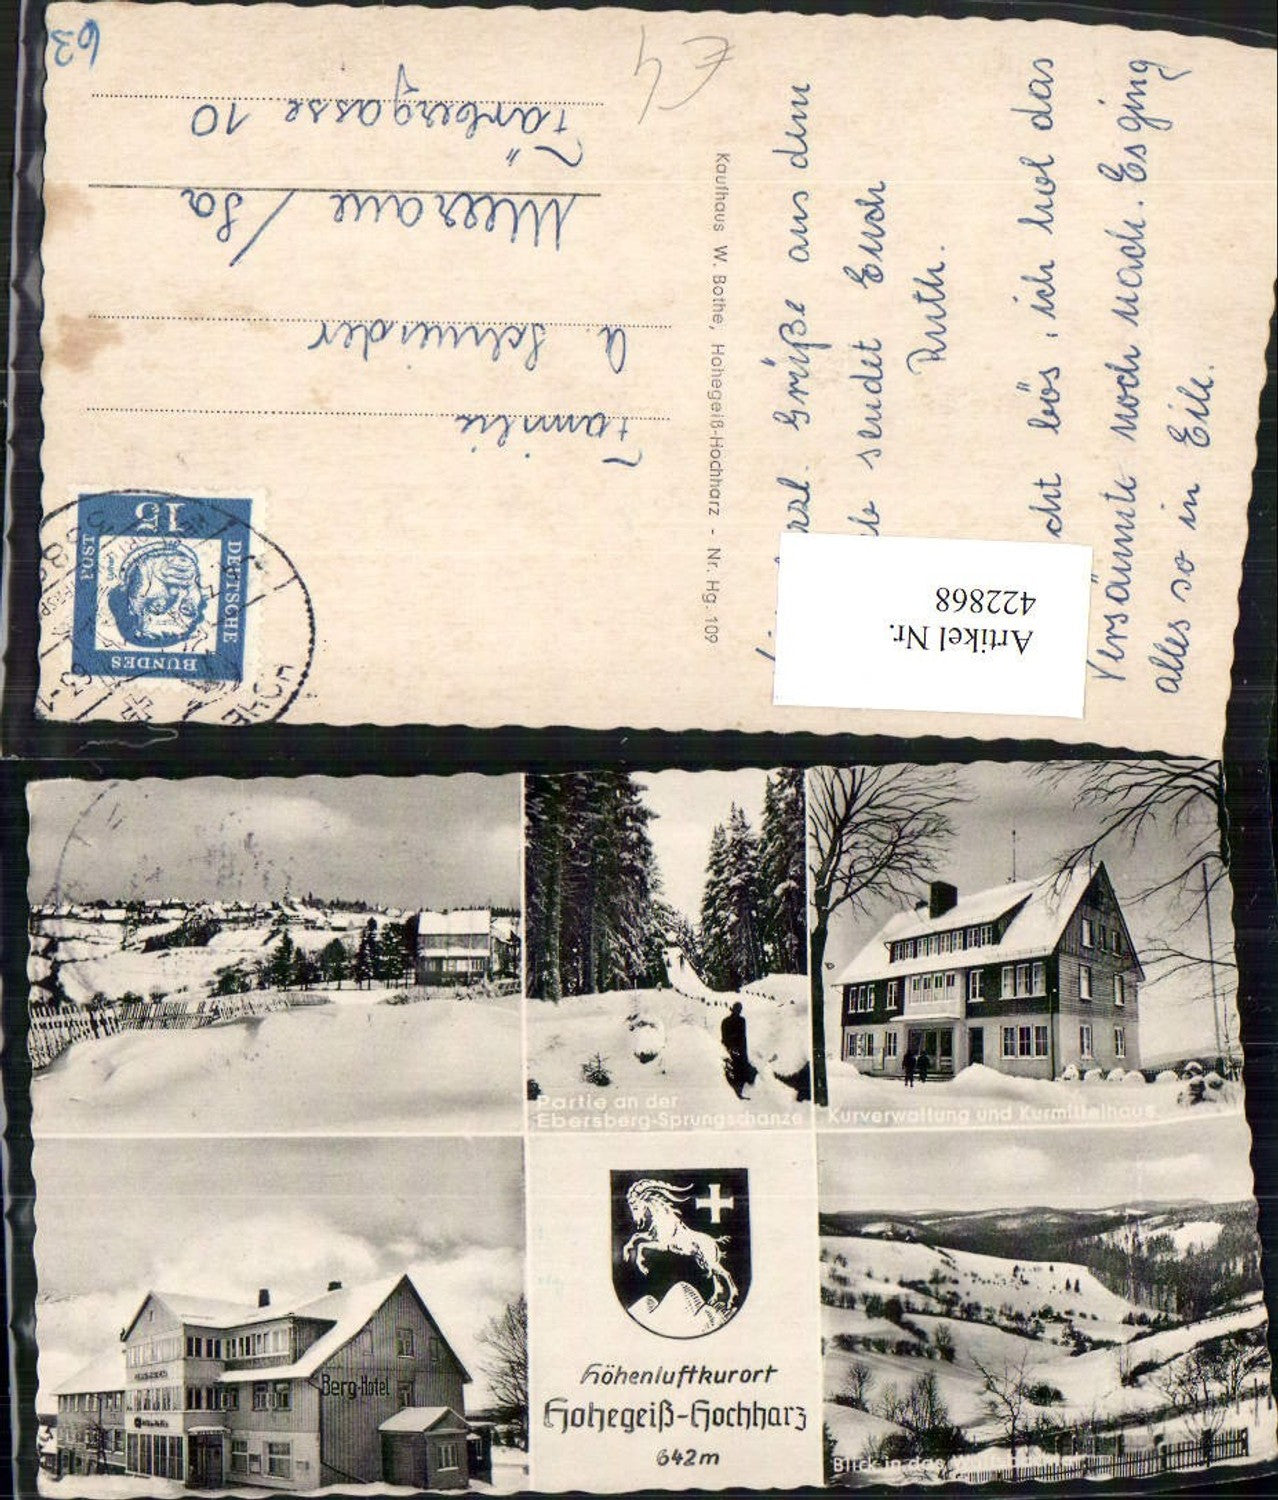 63
£4
Herzl. Grüße aus dem
sendet Euch
Ruth.
bös, ich hol das
Versäumte noch nach. Es ging
alles so in Eile.
Artikel Nr.
422868
Kaufhaus W. Bothe, Hohegeiß-Hochharz - Nr. Hg. 109
DEUTSCHE
BUNDES
POST
15
HOHE
Familie
A. Schneider
Meerane / Sa
Färbergasse 10
Partie an der
Ebersberg-Sprungschanze
Kurverwaltung und Kurmittelhaus
Berg-Hotel
Höhenluftkurort
Hohegeiß-Hochharz
642 m
Blick in das